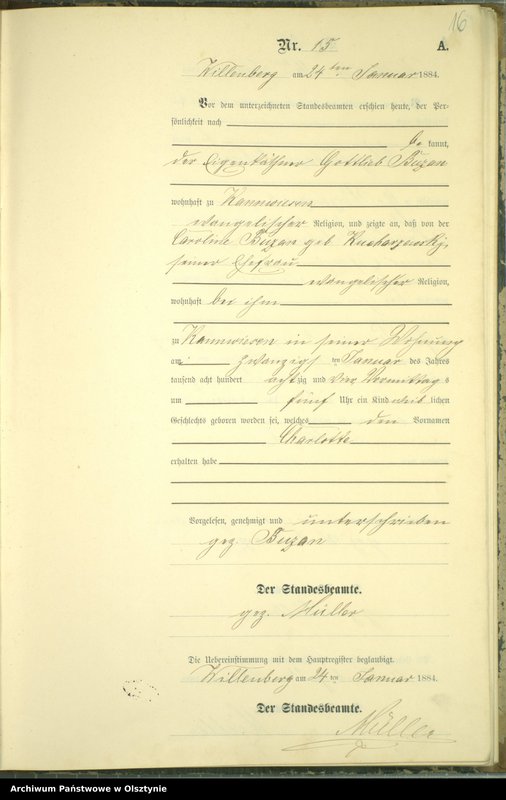 16
Nr. 15 A.
Willenberg am 24 ten Januar 1884.
Vor dem unterzeichneten Standesbeamten erschien heute, der Per-
sönlichkeit nach
be kannt,
der Eigenkäthner Gottlieb Buzan
wohnhaft zu Kannwiesen
evangelischer Religion, und zeigte an, daß von der
Caroline Buzan geb. Kucharzewski,
seiner Ehefrau
evangelischer Religion,
wohnhaft bei ihm
zu Kannwiesen in seiner Wohnung
am zwanzigsten Januar des Jahres
tausend acht hundert achtzig und vier Vormittags
um fünf Uhr ein Kind weiblichen
Geschlechts geboren worden sei, welches den Vornamen
Charlotte
erhalten habe
Vorgelesen, genehmigt und unterschrieben
gez. Buzan
Der Standesbeamte.
gez. Müller
Die Uebereinstimmung mit dem Hauptregister beglaubigt.
Willenberg am 24 ten Januar 1884.
Der Standesbeamte.
Müller
Archiwum Państwowe w Olsztynie